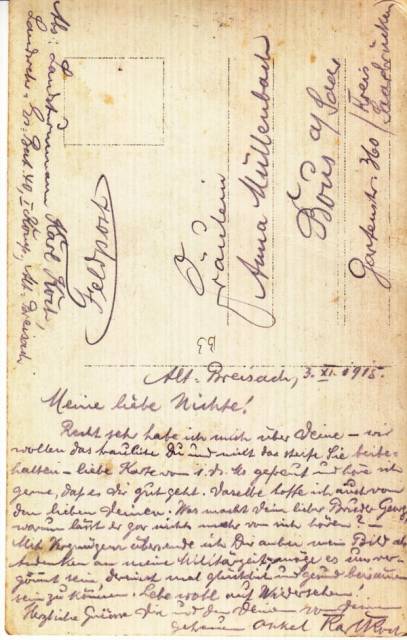 Abs: Landsturmmann Karl Koch,
Landst. Inf. Bat. 49, I. Komp., Alt-Breisach.
Feldpost
Fräulein
Anna Müllenbach
Bous a/Saar
Kreis
Saarbrücken
Gartenstr. 360
Alt-Breisach, 3. XI. 1915.
Meine liebe Nichte!
Recht sehr habe ich mich über Deine – wir
wollen das trauliche Du und nicht das steife Sie beibe-
halten – liebe Karte vom 1. ds. Mts. gefreut und höre ich
gerne, daß es Dir gut geht. Dasselbe hoffe ich auch von
den lieben Deinen. Was macht Dein lieber Bruder Georg,
warum läßt er gar nichts mehr von sich hören? –
Mit Vergnügen übersende ich Dir anbei mein Bild als
Andenken an meine Militärzeit, möge es uns ver-
gönnt sein, dereinst mal glücklich und gesund beisammen
sein zu können. Lebe wohl auf Wiedersehen!
Herzliche Grüsse Dir und den Deinen von Deinem
Onkel Karl Koch